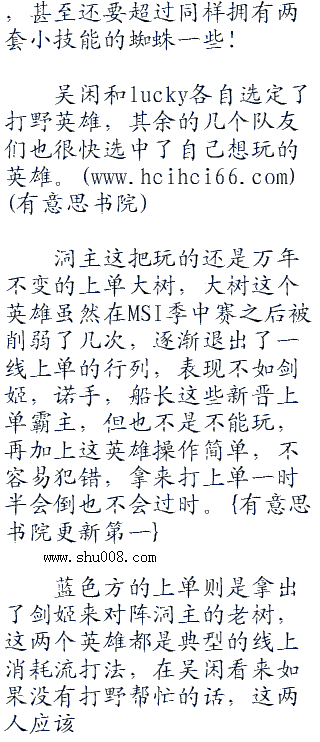 ，甚至还要超过同样拥有两
套小技能的蜘蛛一些！
吴闲和lucky各自选定了
打野英雄，其余的几个队友
们也很快选中了自己想玩的
英雄。(www.hcihci66.com)
(有意思书院)
洞主这把玩的还是万年
不变的上单大树，大树这个
英雄虽然在MSI季中赛之后被
削弱了几次，逐渐退出了一
线上单的行列，表现不如剑
姬，诺手，船长这些新晋上
单霸主，但也不是不能玩，
再加上这英雄操作简单，不
容易犯错，拿来打上单一时
半会倒也不会过时。{有意思
书院更新第一}
www.shu008.com
蓝色方的上单则是拿出
了剑姬来对阵洞主的老树，
这两个英雄都是典型的线上
消耗流打法，在吴闲看来如
果没有打野帮忙的话，这两
人应该